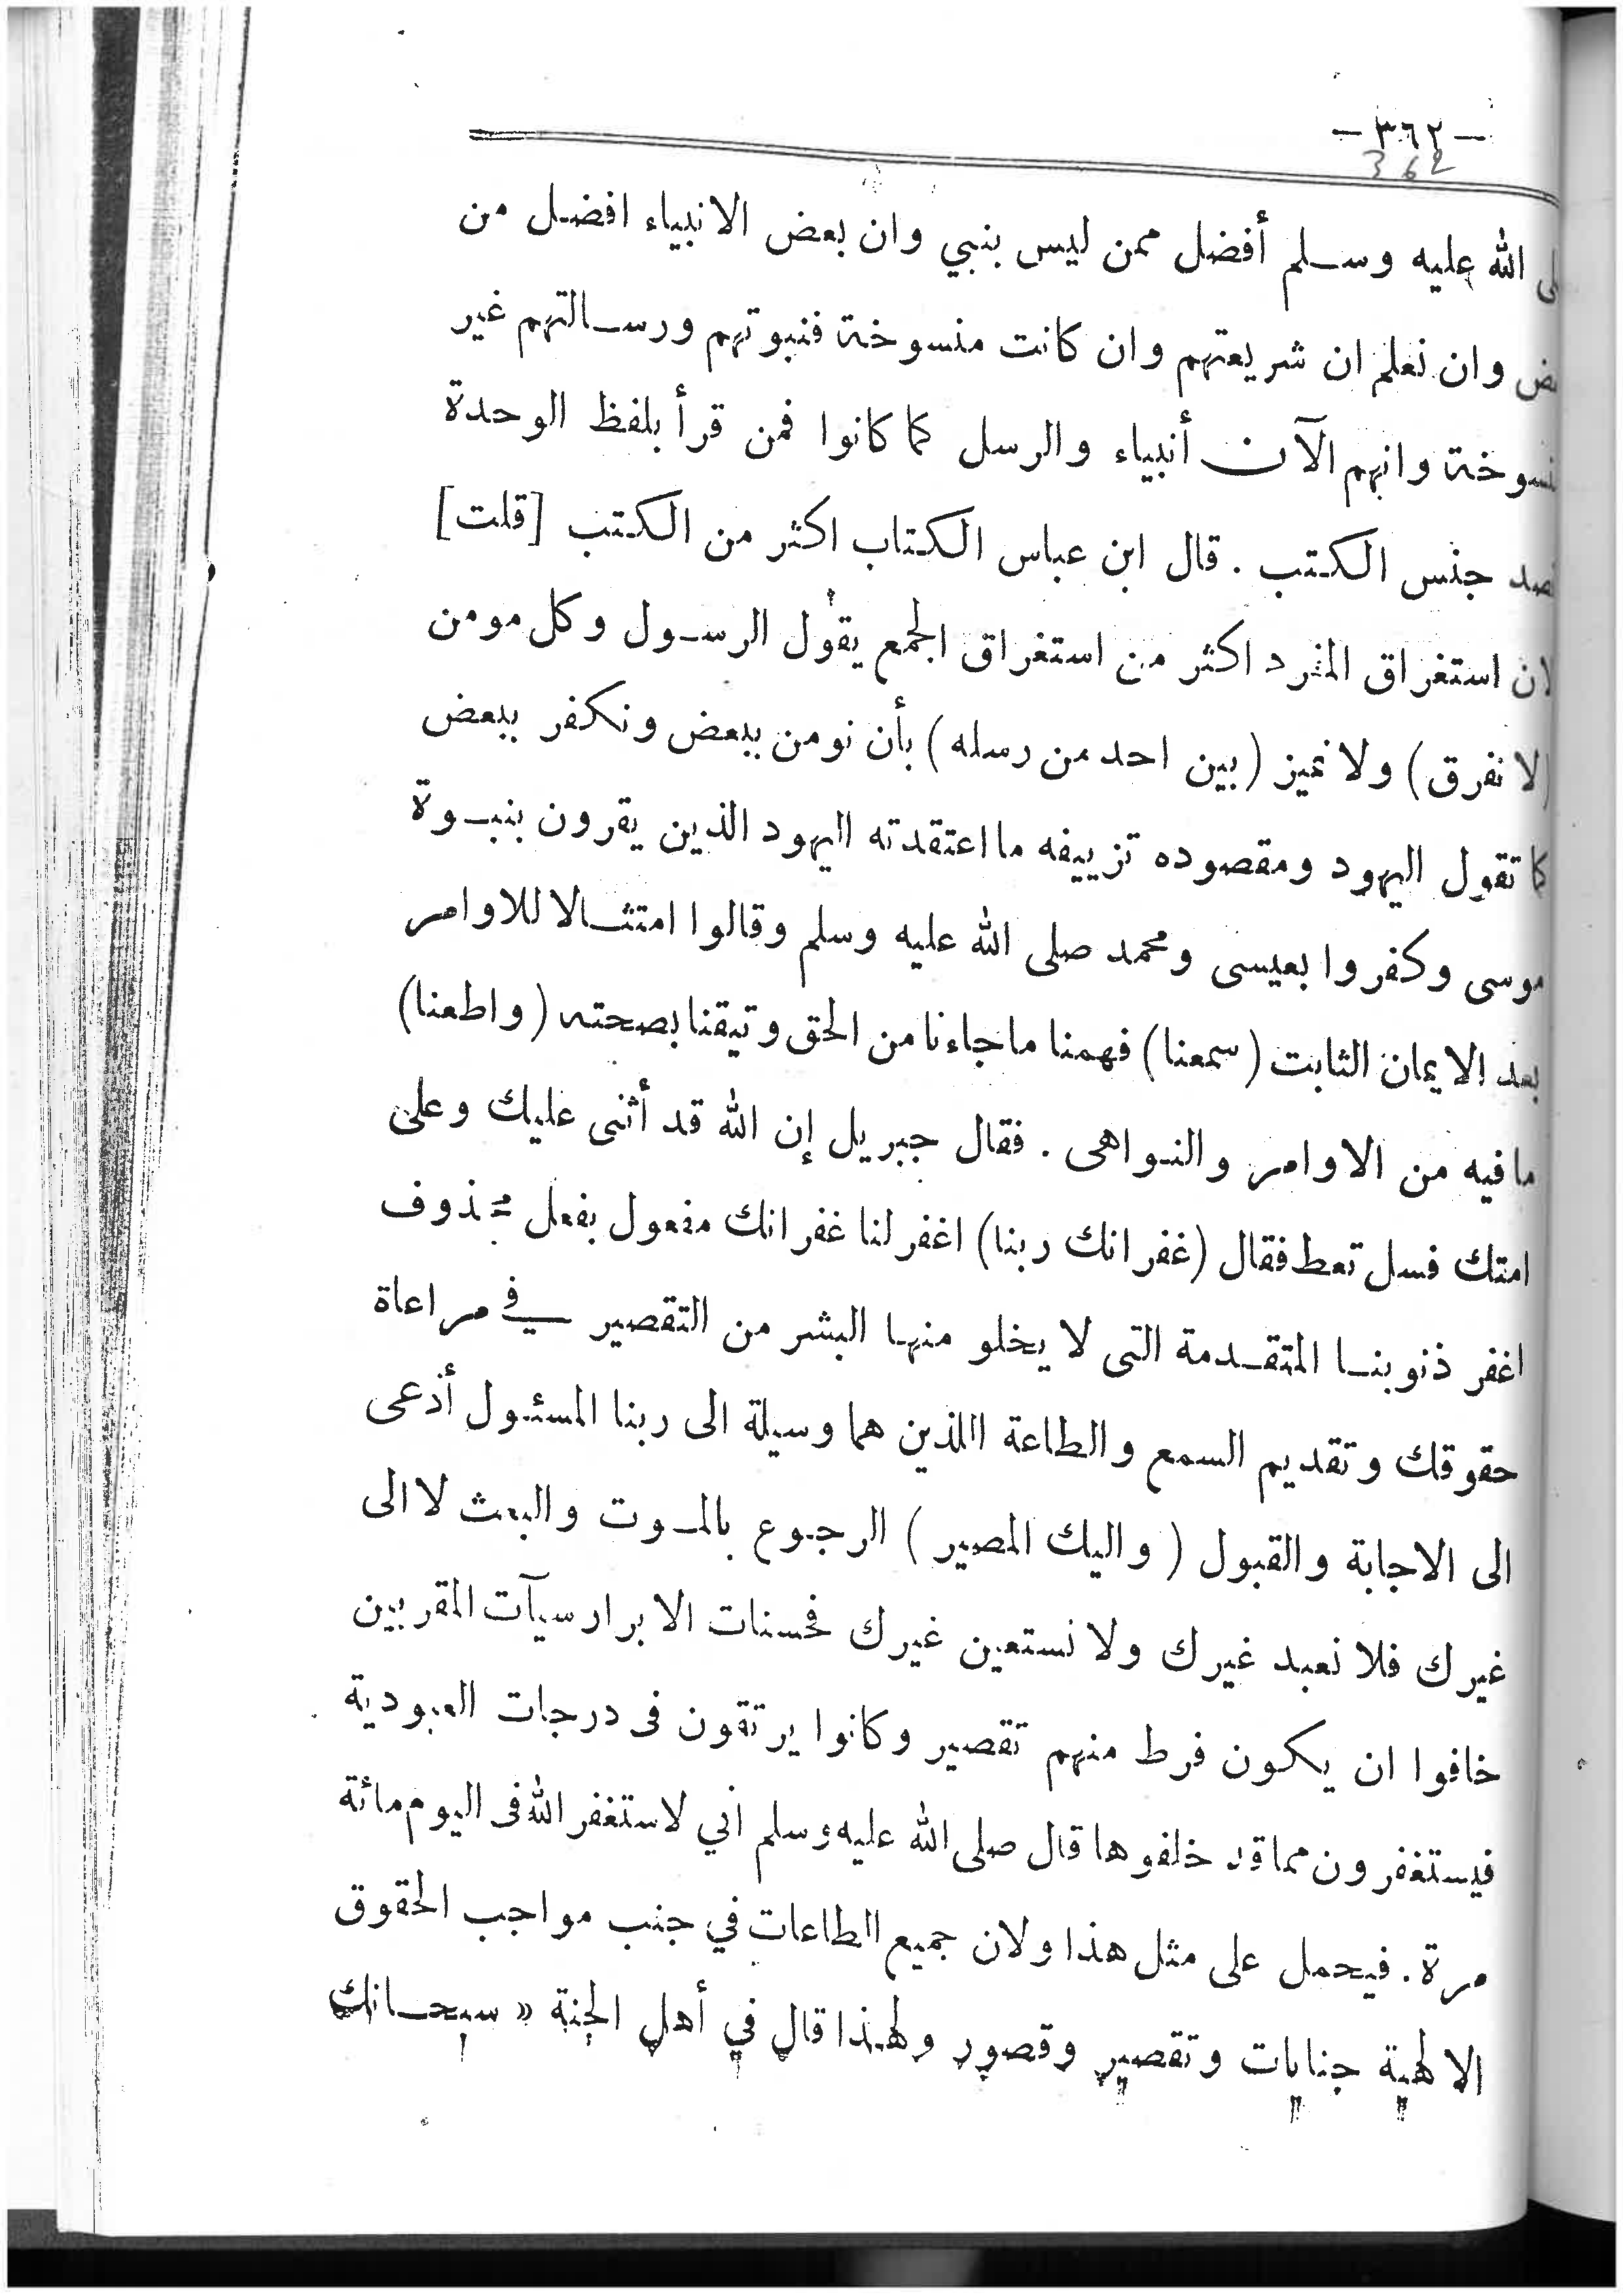 -٣٦٢-
362
الله عليه وسلم أفضل ممن ليس بنبي وان بعض الانبياء افضل من
وان نعلم ان شريعتهم وان كانت منسوخة فنبوتهم ورسالتهم غير
وانهم الآن أنبياء والرسل كما كانوا فمن قرأ بلفظ الوحدة
جنس الكتب . قال ابن عباس الكتاب اكثر من الكتب [قلت]
لان استغراق المفرد اكثر من استغراق الجمع يقول الرسول وكل مومن
(لا نفرق) ولا نميز (بين احد من رسله) بأن نومن ببعض ونكفر ببعض
كما تقول اليهود ومقصوده تزييفه ما اعتقدته اليهود الذين يقرون بنبوة
موسى وكفروا بعيسى ومحمد صلى الله عليه وسلم وقالوا امتثالا للاوامر
بعد الايمان الثابت (سمعنا) فهمنا ماجاءنا من الحق وتيقنا بصحته (واطعنا)
ما فيه من الاوامر والنواهى . فقال جبريل إن الله قد أثنى عليك وعلى
امتك فسل تعط فقال (غفرانك ربنا) اغفر لنا غفرانك مفعول بفعل محذوف
اغفر ذنوبنا المتقدمة التى لا يخلو منها البشر من التقصير في مراعاة
حقوقك وتقديم السمع والطاعة اللذين هما وسيلة الى ربنا المسئول أدعى
الى الاجابة والقبول (واليك المصير) الرجوع بالموت والبعث لا الى
غيرك فلا نعبد غيرك ولا نستعين غيرك فحسنات الابرار سيآت المقربين
خافوا ان يكون فرط منهم تقصير وكانوا يرتقون فى درجات العبودية
فيستغفرون مما قد خلفوها قال صلى الله عليه وسلم اني لاستغفر الله فى اليوم مائة
مرة . فيحمل على مثل هذا ولان جميع الطاعات في جنب مواجب الحقوق
الالهية جنايات وتقصير وقصور ولهذا قال في أهل الجنة « سبحانك